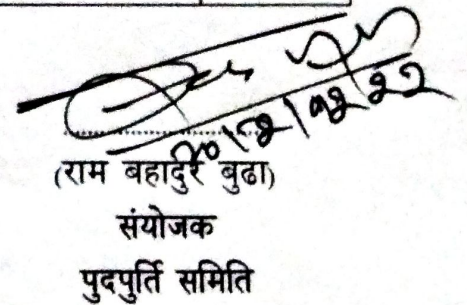 (राम बहादुर बुढा)
संयोजक
पुदपुर्ति समिति